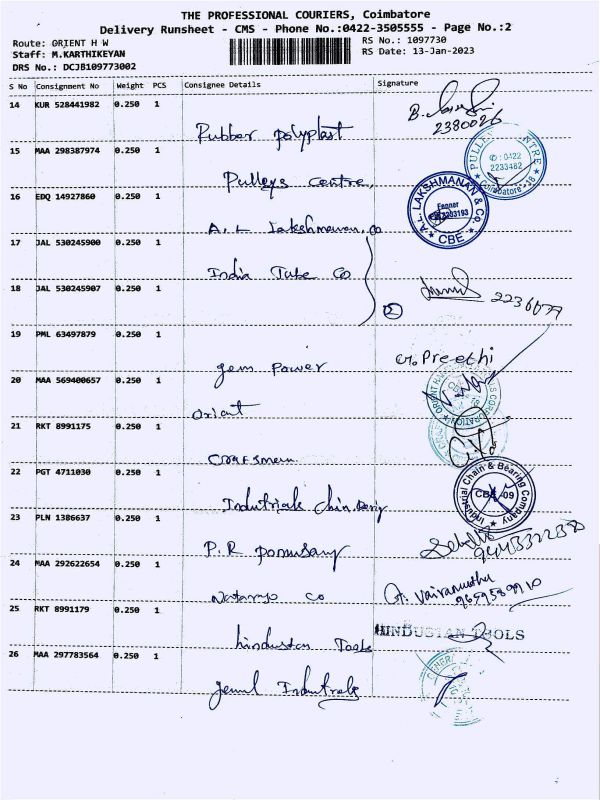 THE PROFESSIONAL COURIERS, Coimbatore
Delivery Runsheet - CMS - Phone No.:0422-3505555 - Page No.:2
Route: ORIENT H W
RS No.: 1097730
Staff: M.KARTHIKEYAN
RS Date: 13-Jan-2023
DRS No.: DCJB109773002
S No Consignment No Weight PCS Consignee Details Signature
14 KUR 528441982 0.250 1
Rubber polyplast
2380026
15 MAA 298387974 0.250 1
Pulleys centre,
PULLEYS CENTRE
✆: 0422
2233482
Coimbatore - 18
16 EDQ 14927860 0.250 1
A. L Lakshmanan, co
A.L. LAKSHMANAN & Co
Fenner
CBE
17 JAL 530245900 0.250 1
India Tube Co
18 JAL 530245907 0.250 1
2
19 PML 63497879 0.250 1
Gem Power
G. Preethi
20 MAA 569400657 0.250 1
Orient
21 RKT 8991175 0.250 1
22 PGT 4711030 0.250 1
Industrial Chain & Bearing Company
CBE - 09
23 PLN 1386637 0.250 1
P. R ponnusamy
24 MAA 292622654 0.250 1
Nataraj Co
Vairamuthu
9659589910
25 RKT 8991179 0.250 1
hindustan Tools
HINDUSTAN TOOLS
26 MAA 297783564 0.250 1
GENERAL